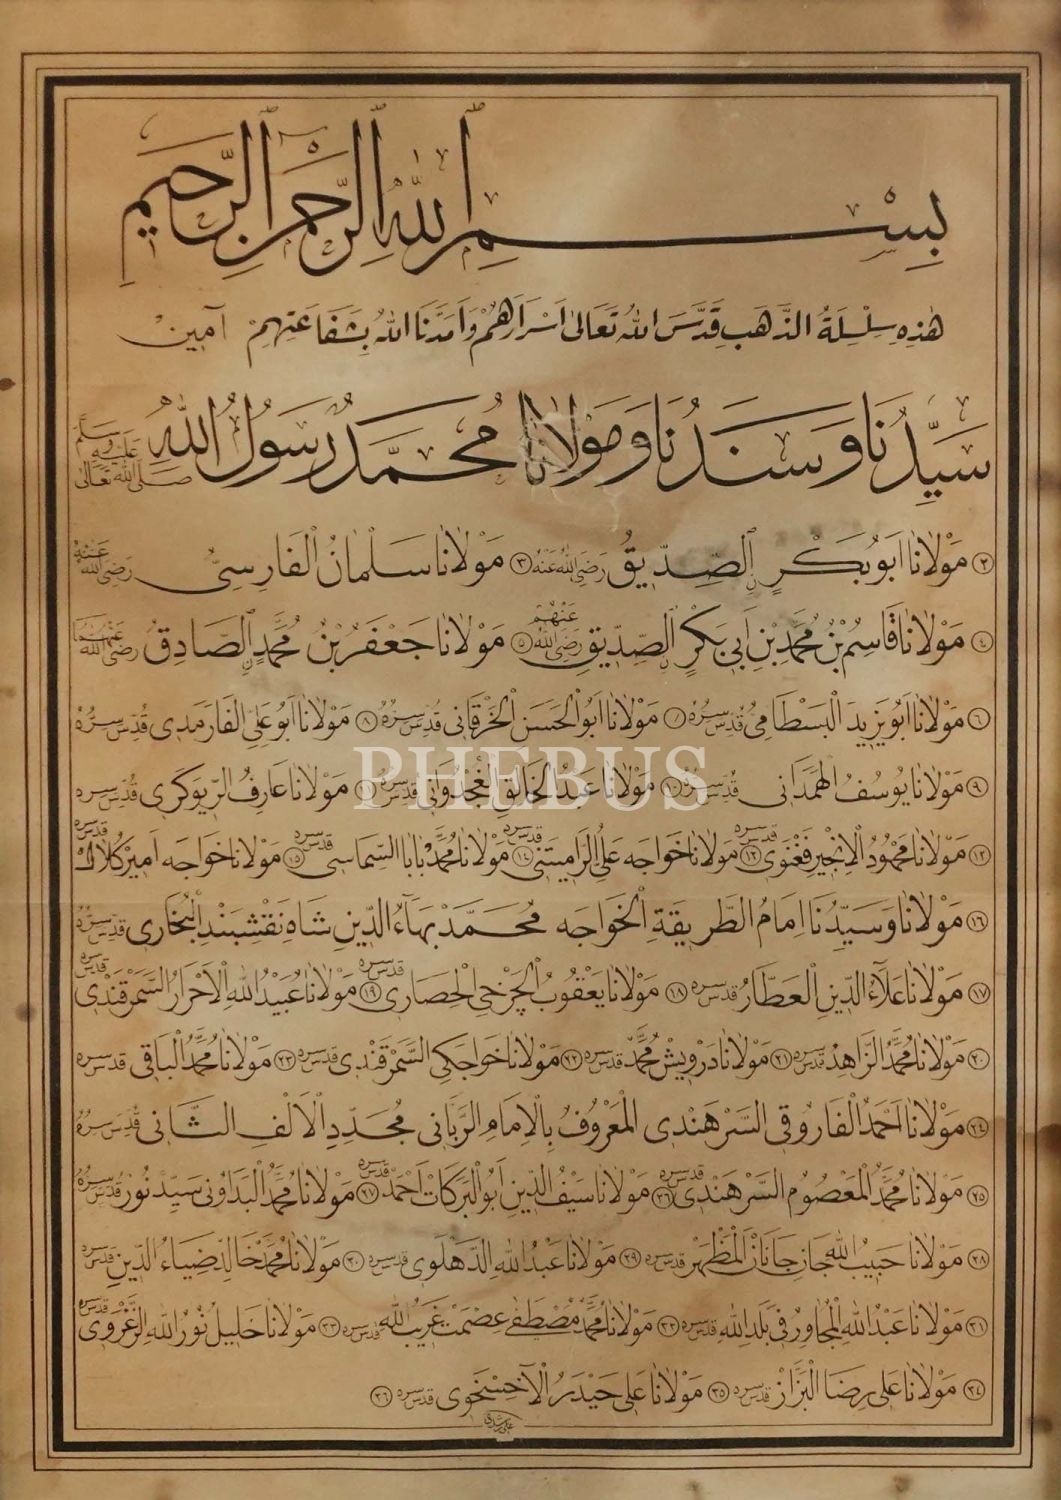 بِسْمِ اللهِ الرَّحْمٰنِ الرَّحِيمِ
هٰذِهِ سِلْسِلَةُ الذَّهَبِ قَدَّسَ اللهُ تَعَالٰى اَسْرَارَهُمْ وَاَمَدَّنَا اللهُ بِشَفَاعَتِهِمْ اٰمِينْ
سَيِّدُنَا وَسَنَدُنَا وَمَوْلَانَا مُحَمَّدٌ رَسُولُ اللهِ صَلَّى اللهُ تَعَالٰى عَلَيْهِ وَسَلَّمَ
٢ مَوْلَانَا اَبُو بَكْرٍ الصِّدِّيقُ رَضِيَ اللهُ عَنْهُ ٣ مَوْلَانَا سَلْمَانُ الْفَارِسِيُّ رَضِيَ اللهُ عَنْهُ
٤ مَوْلَانَا قَاسِمُ بْنُ مُحَمَّدِ بْنِ اَبِي بَكْرٍ الصِّدِّيقِ رَضِيَ اللهُ عَنْهُمْ ٥ مَوْلَانَا جَعْفَرُ بْنُ مُحَمَّدٍ الصَّادِقُ رَضِيَ اللهُ عَنْهُمَا
٦ مَوْلَانَا اَبُو يَزِيدَ الْبَسْطَامِيُّ قُدِّسَ سِرُّهُ ٧ مَوْلَانَا اَبُو الْحَسَنِ الْخَرْقَانِي قُدِّسَ سِرُّهُ ٨ مَوْلَانَا اَبُو عَلِيِّ الْفَارْمَدِي قُدِّسَ سِرُّهُ
٩ مَوْلَانَا يُوسُفُ الْهَمَدَانِي قُدِّسَ سِرُّهُ ١٠ مَوْلَانَا عَبْدُ الْخَالِقِ الْغُجْدُوَانِي قُدِّسَ سِرُّهُ ١١ مَوْلَانَا عَارِفُ الرِّيوَكَرِي قُدِّسَ سِرُّهُ
PHEBUS
١٢ مَوْلَانَا مَحْمُودُ الْاِنْجِيرِ فَغْنَوِي قدس سره ١٣ مَوْلَانَا خَوَاجَه عَلِيُّ الرَّامِيتَنِي قدس سره ١٤ مَوْلَانَا مُحَمَّدْ بَابَا السَّمَاسِي قدس سره ١٥ مَوْلَانَا خَوَاجَه اَمِيرْ كُلَالْ قدس سره
١٦ مَوْلَانَا وَسَيِّدُنَا اِمَامُ الطَّرِيقَةِ الْخَوَاجَه مُحَمَّدْ بَهَاءُ الدِّينِ شَاهِ نَقْشِبَنْدِ الْبُخَارِي قُدِّسَ سِرُّهُ
١٧ مَوْلَانَا عَلَاءُ الدِّينِ الْعَطَّارُ قدس سره ١٨ مَوْلَانَا يَعْقُوبُ الْچَرْخِي الْحِصَارِي قدس سره ١٩ مَوْلَانَا عُبَيْدُ اللهِ الْاَحْرَارُ السَّمَرْقَنْدِي قدس سره
٢٠ مَوْلَانَا مُحَمَّدُ الزَّاهِدُ قدس سره ٢١ مَوْلَانَا دَرْوِيشْ مُحَمَّدْ قدس سره ٢٢ مَوْلَانَا خَوَاجَكِي السَّمَرْقَنْدِي قدس سره ٢٣ مَوْلَانَا مُحَمَّدُ الْبَاقِي قدس سره
٢٤ مَوْلَانَا اَحْمَدُ الْفَارُوقِي السَّرْهَنْدِي الْمَعْرُوفُ بِالْاِمَامِ الرَّبَّانِي مُجَدِّدِ الْاَلْفِ الثَّانِي قُدِّسَ سِرُّهُ
٢٥ مَوْلَانَا مُحَمَّدُ الْمَعْصُومِ السَّرْهَنْدِي قدس سره ٢٦ مَوْلَانَا سَيْفُ الدِّينِ اَبُو الْبَرَكَاتْ اَحْمَدْ قدس سره ٢٧ مَوْلَانَا مُحَمَّدُ الْبَدَاوُنِي سَيِّدْ نُورْ قُدِّسَ سِرُّهُ
٢٨ مَوْلَانَا حَبِيبُ اللهِ جَانِ جَانَانْ الْمَظْهَرْ قدس سره ٢٩ مَوْلَانَا عَبْدُ اللهِ الدَّهْلَوِي قدس سره ٣٠ مَوْلَانَا مُحَمَّدْ خَالِدْ ضِيَاءُ الدِّينِ قدس سره
٣١ مَوْلَانَا عَبْدُ اللهِ الْمُجَاوِرُ فِي بَلَدِ اللهِ قدس سره ٣٢ مَوْلَانَا مُحَمَّدْ مُصْطَفٰى عِصْمَتْ غَرِيبُ اللهِ قدس سره ٣٣ مَوْلَانَا خَلِيلْ نُورُ اللهِ الزَّغْرَوِي قدس سره
٣٤ مَوْلَانَا عَلِي رِضَا الْبَزَّازْ قدس سره ٣٥ مَوْلَانَا عَلِي حَيْدَرُ الْاَخِسْخَوِي قدس سره ٣٦